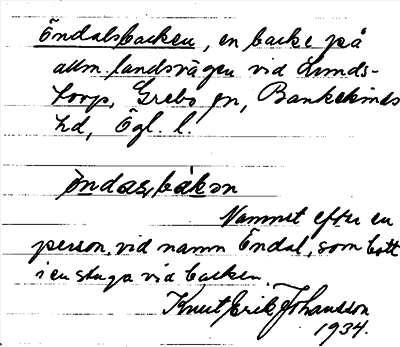 Öndalsbacken, en backe på
allm. landsvägen vid Lunds-
torp, Grebo sn, Bankekinds
hd, Ögl. l.
öndas,bakən
Namnet efter en
person, vid namn Öndal, som bott
i en stuga vid backen.
Knut Erik Johansson
1934.